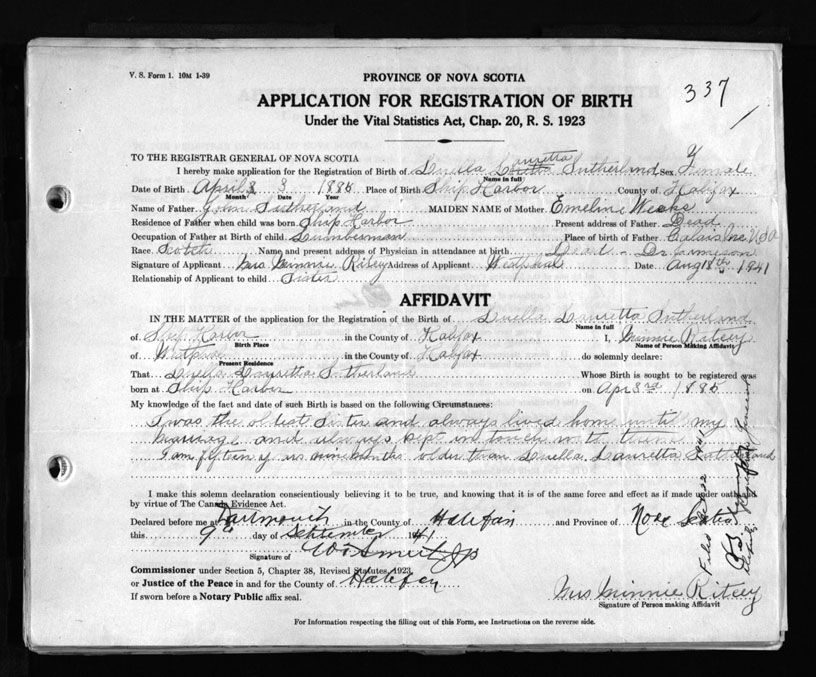 V. S. Form 1. 10M 1-39
PROVINCE OF NOVA SCOTIA
337
APPLICATION FOR REGISTRATION OF BIRTH
Under the Vital Statistics Act, Chap. 20, R. S. 1923
TO THE REGISTRAR GENERAL OF NOVA SCOTIA
I hereby make application for the Registration of Birth of Luella Lauretta Sutherland Sex Female
Name in full
Date of Birth April 3 1885 Place of Birth Ship Harbor County of Halifax
Month Date Year
Name of Father John Sutherland MAIDEN NAME of Mother Emeline Weeks
Residence of Father when child was born Ship Harbor Present address of Father Dead
Occupation of Father at Birth of child Lumberman Place of birth of Father Calais Me U S A
Race Scotch Name and present address of Physician in attendance at birth Dead - Dr Jameson
Signature of Applicant Mrs Minnie Ritcey Address of Applicant Westphal Date Aug 18th 1941
Relationship of Applicant to child Sister
AFFIDAVIT
IN THE MATTER of the application for the Registration of the Birth of Luella Lauretta Sutherland
Name in full
of Ship Harbor in the County of Halifax I, Minnie Ritcey
Birth Place Name of Person Making Affidavit
of Westphal in the County of Halifax do solemnly declare:
Present Residence
That Luella Lauretta Sutherland Whose Birth is sought to be registered was
born at Ship Harbor on Apr 3rd 1885
My knowledge of the fact and date of such Birth is based on the following Circumstances:
I was the oldest Sister and always lived home until my
marriage and always kept in touch with them
I am fifteen years months older than Luella Lauretta Sutherland
I make this solemn declaration conscientiously believing it to be true, and knowing that it is of the same force and effect as if made under oath
by virtue of The Canada Evidence Act.
Declared before me at Dartmouth in the County of Halifax and Province of Nova Scotia
this 9th day of September 1941
Signature of
Commissioner under Section 5, Chapter 38, Revised Statutes, 1923,
or Justice of the Peace in and for the County of Halifax
If sworn before a Notary Public affix seal.
Mrs Minnie Ritcey
Signature of Person making Affidavit
For Information respecting the filling out of this Form, see Instructions on the reverse side.